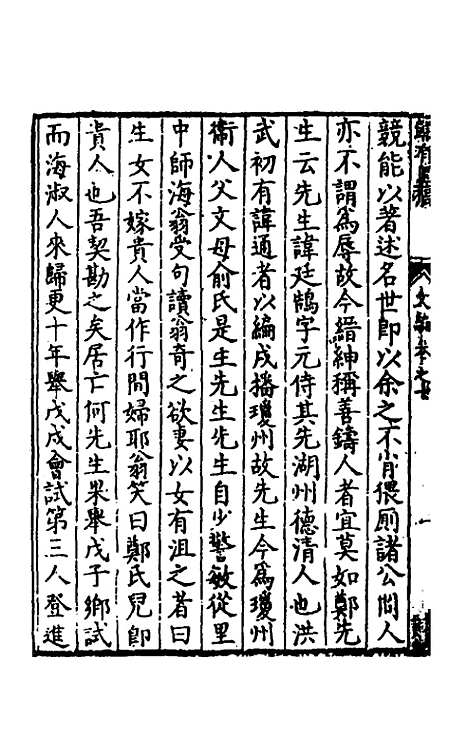 競能以著述名世即以余之不肖猥厠諸公間人
亦不謂爲辱故今縉紳稱善鑄人者宜莫如鄭先
生云先生諱廷鵠字元侍其先湖州德清人也洪
武初有諱通者以編戍播瓊州故先生今爲瓊州
衞人父文母俞氏是生先生先生自少警敏從里
中師海翁受句讀翁奇之欲妻以女有沮之者曰
生女不嫁貴人當作行間婦耶翁笑曰鄭氏兒卽
貴人也吾契勘之矣居亡何先生果舉戊子鄉試
而海淑人來歸更十年舉戊戌會試第三人登進